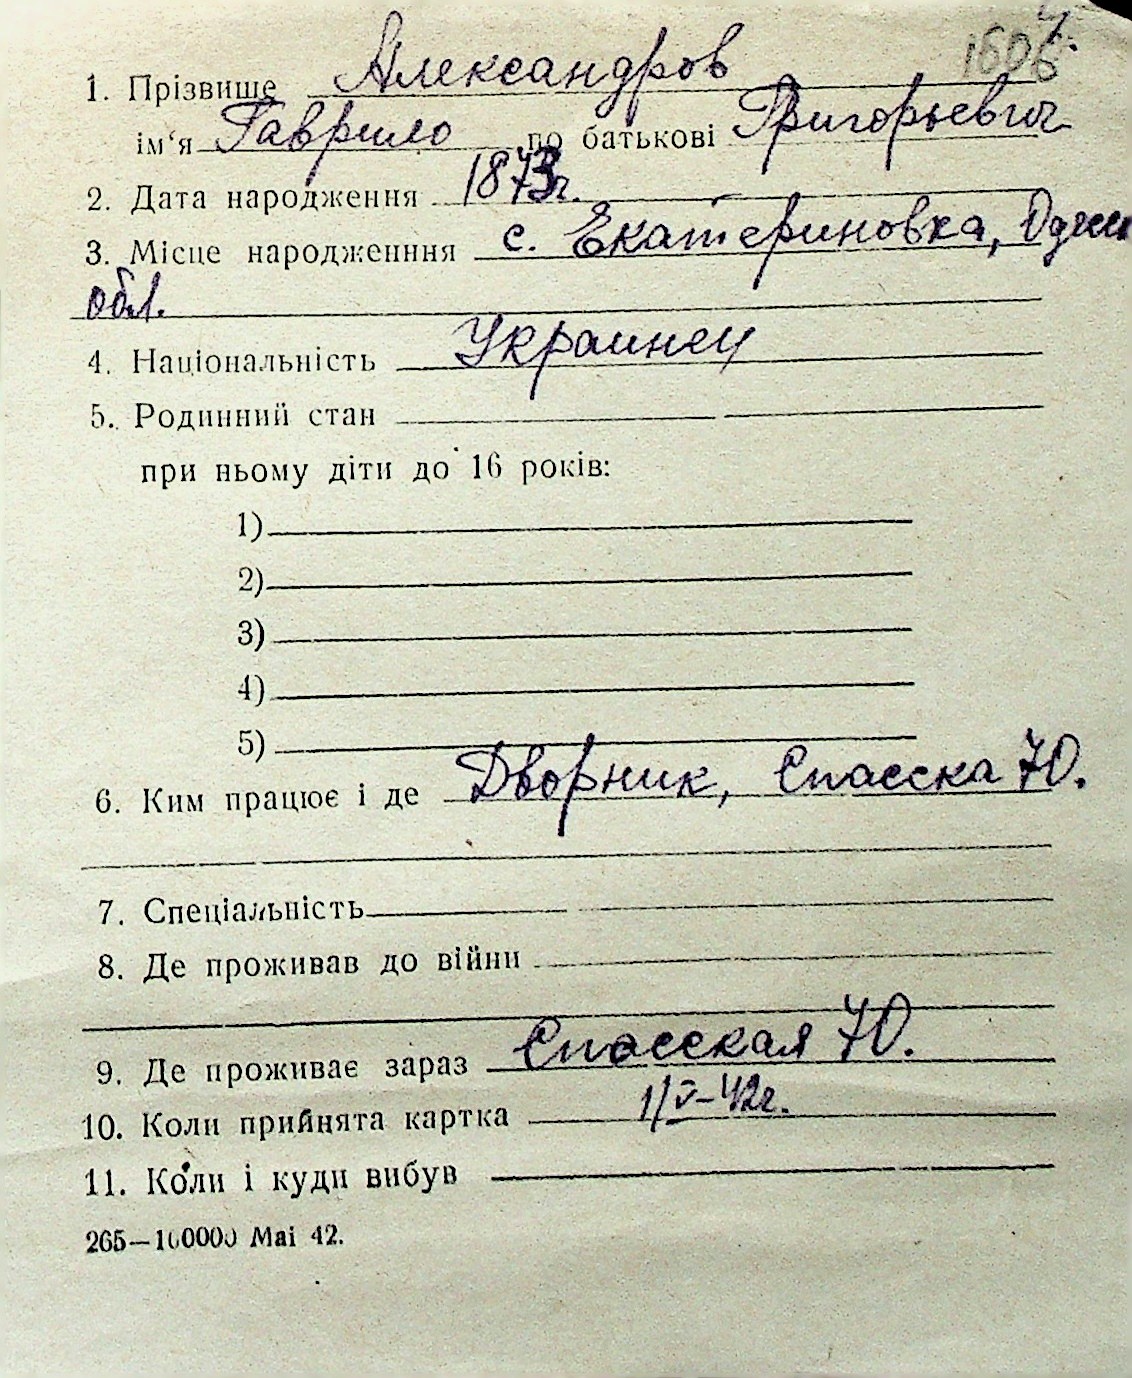 1. Прізвище Александров
ім'я Гаврило по батькові Григорьевич
2. Дата народження 1873г.
3. Місце народженння с. Екатериновка, Одесс
обл.
4. Національність Украинец
5. Родинний стан
при ньому діти до 16 років:
1)
2)
3)
4)
5)
6. Ким працює і де Дворник, Спасска 70.
7. Спеціальність
8. Де проживав до війни
9. Де проживає зараз Спасская 70.
10. Коли прийнята картка 1/V-42г.
11. Коли і куди вибув
265—100000 Mai 42.